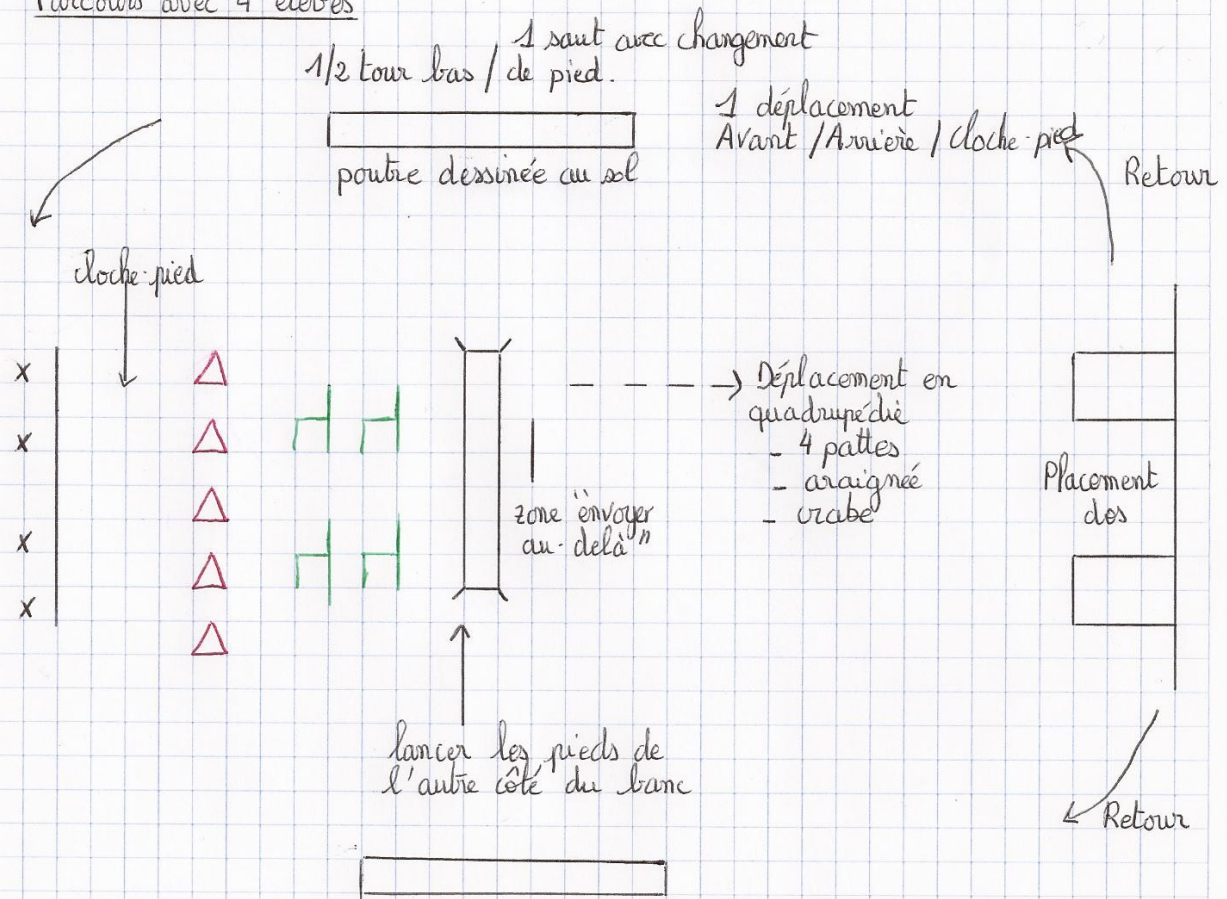 Parcours avec 4 élèves
1 saut avec changement
1/2 tour bas / de pied.
1 déplacement
Avant / Arrière / Cloche-pied
poutre dessinée au sol
Retour
cloche-pied
x
x
x
x
Déplacement en
quadrupédie
- 4 pattes
- araignée
- crabe
zone "envoyer
au-delà"
Placement
dos
lancer les pieds de
l'autre côté du banc
Retour